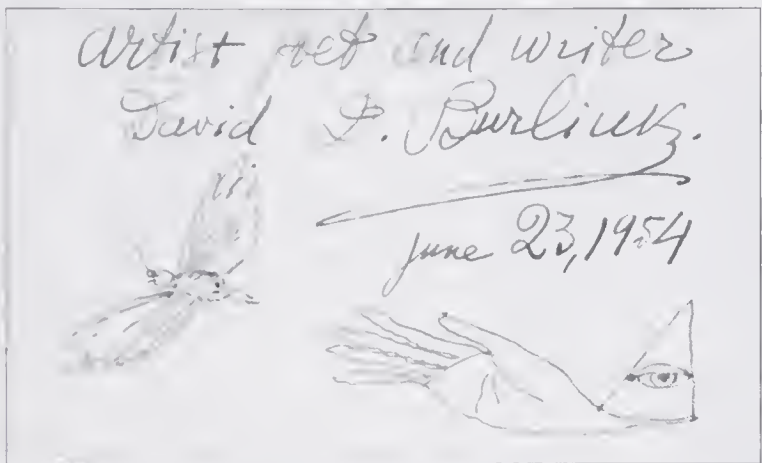 artist poet and writer
David D. Burliuk.
june 23, 1954